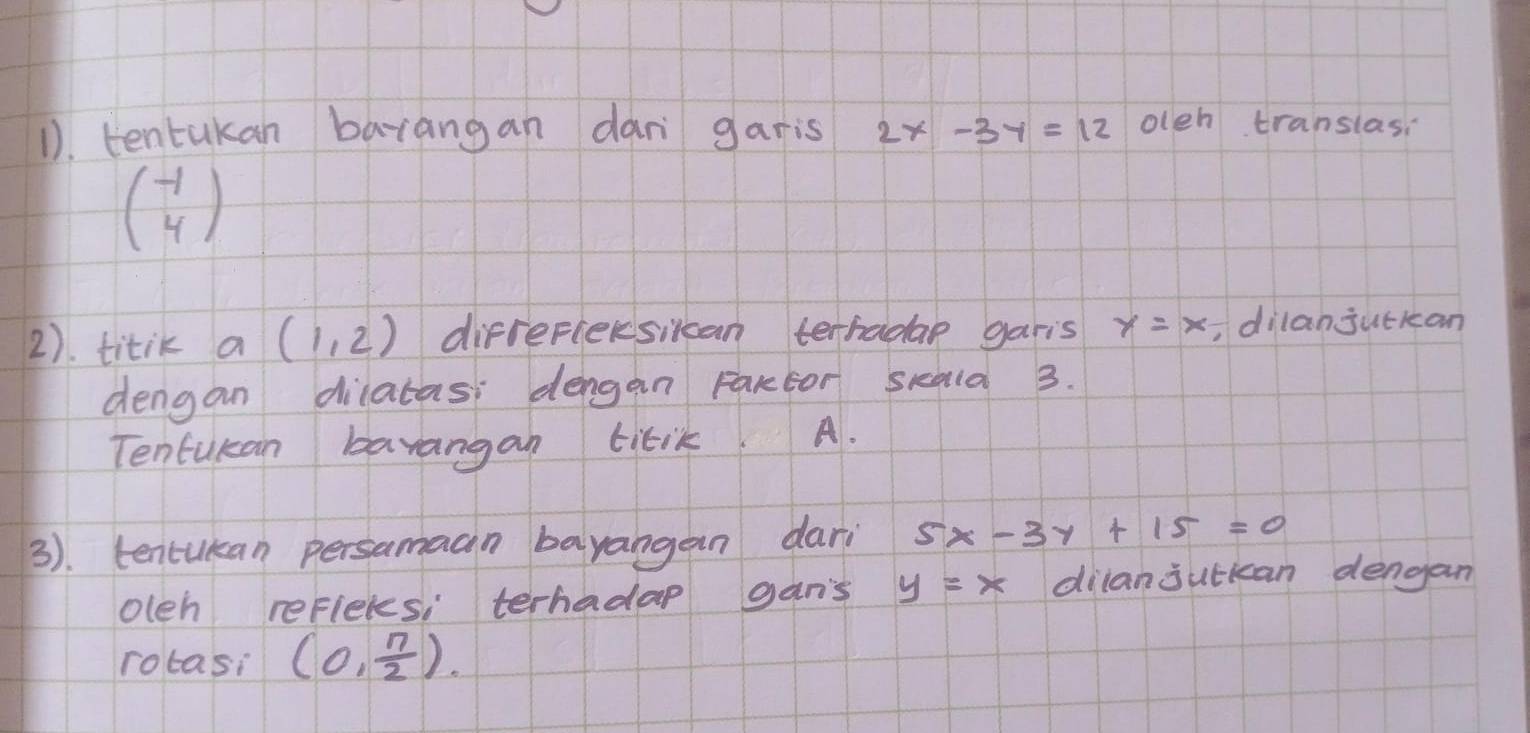 1). tentukan bayangan dari garis 2x - 3y = 12 oleh translasi
(-1
4)
2). titik a (1,2) difrefleksikan terhadap garis y = x, dilanjutkan
dengan dilatasi dengan faktor skala 3.
Tentukan bayangan titik A.
3). tentukan persamaan bayangan dari 5x - 3y + 15 = 0
oleh refleksi terhadap garis y = x dilanjutkan dengan
rotasi (0, π/2).